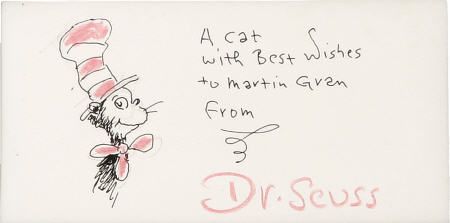 A cat
with Best Wishes
to Martin Gran
From
Dr. Seuss